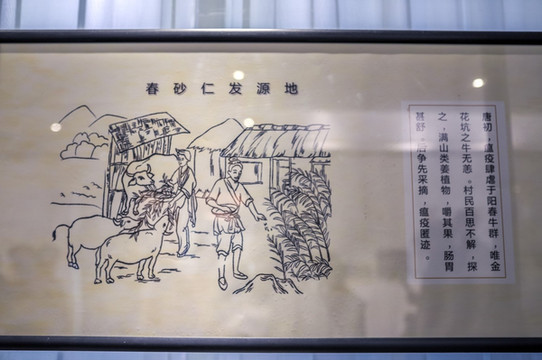 春砂仁发源地
唐初，瘟疫肆虐于阳春牛群，唯金
花坑之牛无恙。村民百思不解，探
之，满山类姜植物，嚼其果，肠胃
甚舒，后争先采摘，瘟疫匿迹。